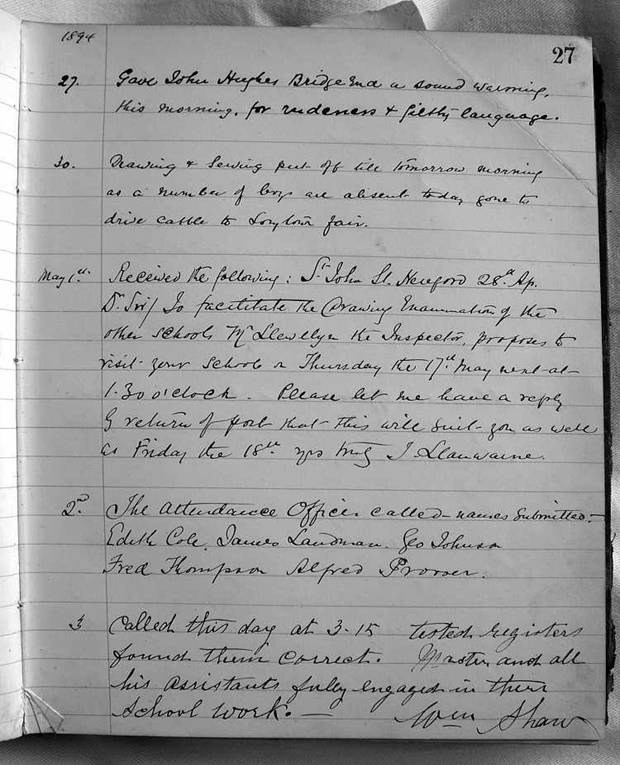 1894
27
27. Gave John Hughes Bridge End a sound warning,
this morning, for rudeness & filthy language.
30. Drawing & Sewing put off till tomorrow morning
as a number of boys are absent today gone to
drive cattle to Longtown fair.
May 1st. Received the following: St John St. Hereford 28th Ap.
Dr Sir/ To facilitate the Drawing Examination of the
other schools Mr Llewellyn the Inspector, proposes to
visit your Schools on Thursday the 17th May next at
1.30 o'clock. Please let me have a reply
by return of post that this will suit you as well
as Friday the 18th yrs truly J. Llanwarne.
2nd. The Attendance Officer called names submitted:-
Edith Cole, James Landman, Geo Johnson
Fred Thompson Alfred Prosser.
3 Called this day at 3-15 tested registers
found them correct. Master and all
his assistants fully engaged in their
School work. — Wm Shaw